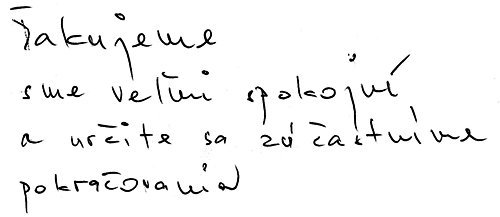 Ďakujeme
sme veľmi spokojní
a určite sa zúčastníme
pokračovania